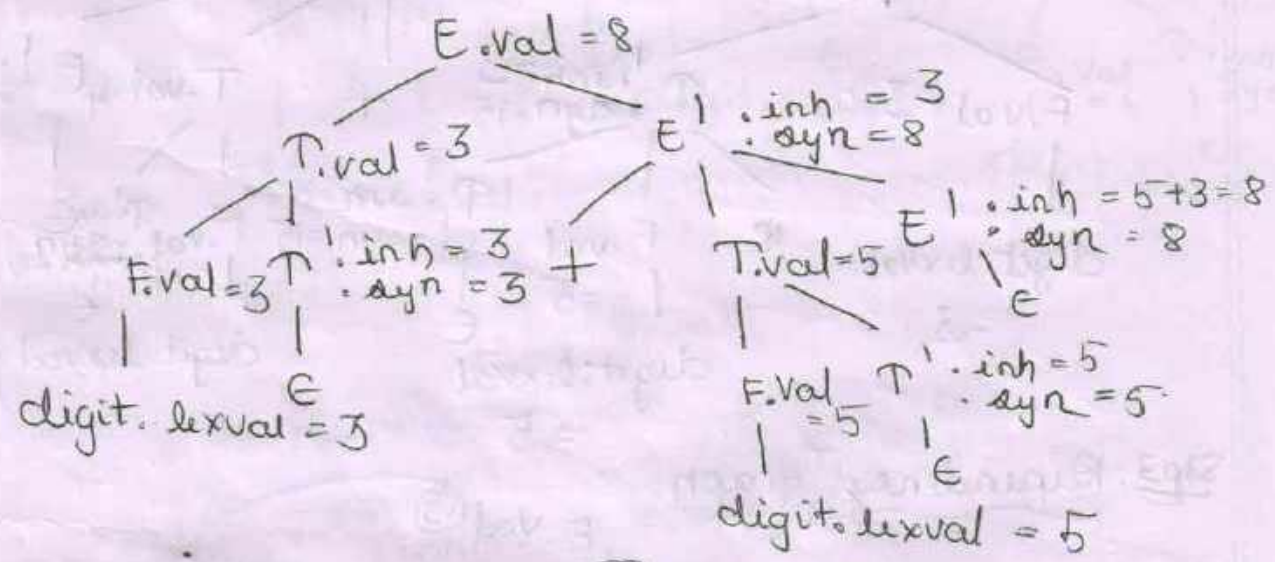 E.val = 8
T.val = 3
E' .inh = 3
.syn = 8
F.val=3
T' .inh = 3
.syn = 3
+
T.val=5
E' .inh = 5+3=8
.syn = 8
ϵ
digit.lexval = 3
ϵ
F.val
=5
T' .inh = 5
.syn = 5
ϵ
digit.lexval = 5